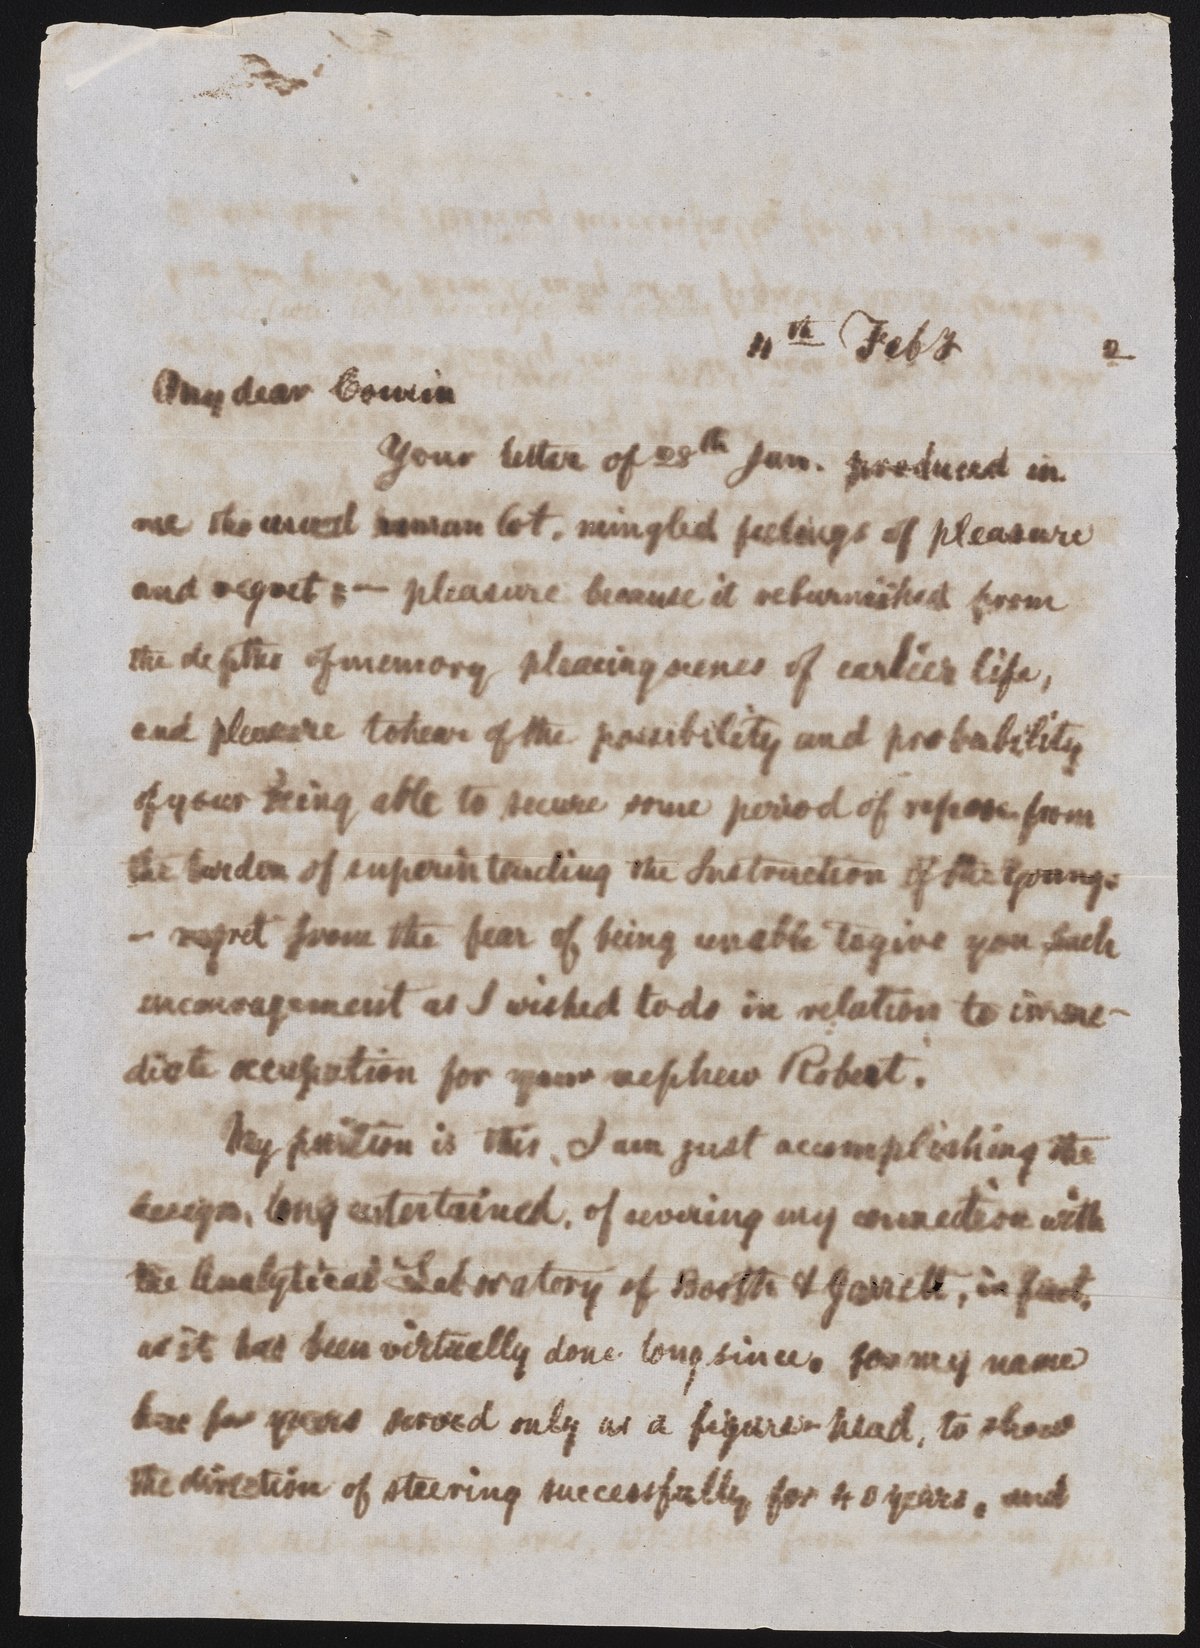 4th Feby 2
My dear Cousin
Your letter of 28th Jan. produced in
me the usual human lot, mingled feelings of pleasure
and regret :— pleasure because it reburnished from
the depths of memory pleasing scenes of earlier life,
and pleasure to hear of the possibility and probability
of your being able to secure some period of repose from
the burden of superintending the Instruction of the Young:
— regret from the fear of being unable to give you such
encouragement as I wished to do in relation to imme-
diate occupation for your nephew Robert.
My position is this. I am just accomplishing the
design, long entertained, of severing my connection with
the Analytical Laboratory of Booth & Garrett, in fact,
as it has been virtually done long since. for my name
has for years served only as a figure-head, to show
the direction of steering successfully for 40 years, and